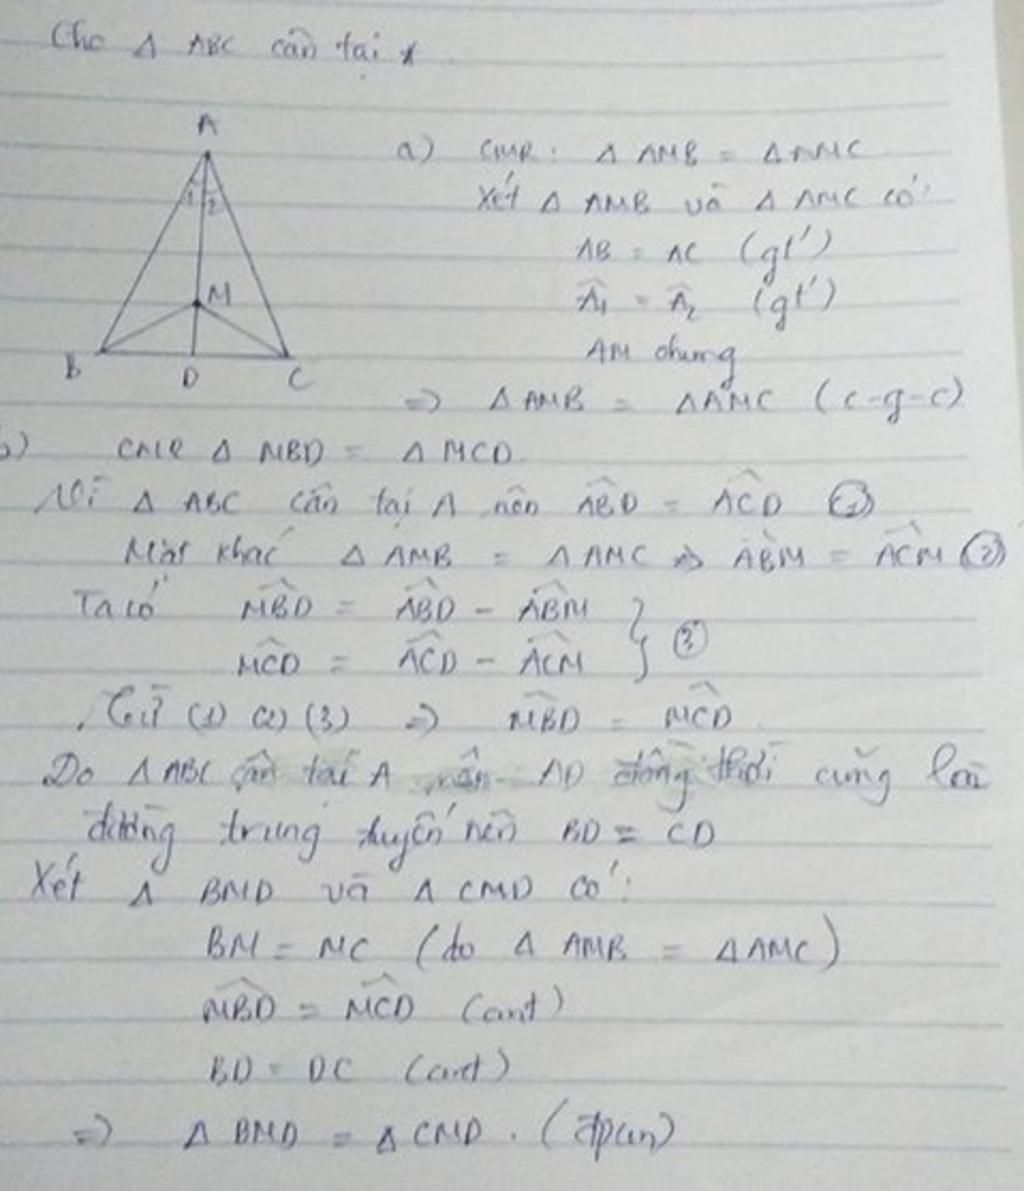 Cho Δ ABC cân tại
A
1 2
M
B D C
a) CMR: Δ AMB = Δ AMC
Xét Δ AMB và Δ AMC có:
AB = AC (gt)
Â₁ = Â₂ (gt)
AM chung
=> Δ AMB = Δ AMC (c-g-c)
b) CMR Δ MBD = Δ MCD
Vì Δ ABC cân tại A nên ABD = ACD (1)
Mặt khác Δ AMB = Δ AMC => ABM = ACM (2)
Ta có MBD = ABD - ABM
MCD = ACD - ACM } (3)
Từ (1) (2) (3) => MBD = MCD
Do Δ ABC cân tại A nên AD đồng thời cũng là
đường trung tuyến nên BD = CD
Xét Δ BMD và Δ CMD có:
BM = MC (do Δ AMB = Δ AMC)
MBD = MCD (cmt)
BD = DC (cmt)
=> Δ BMD = Δ CMD. (đpcm)